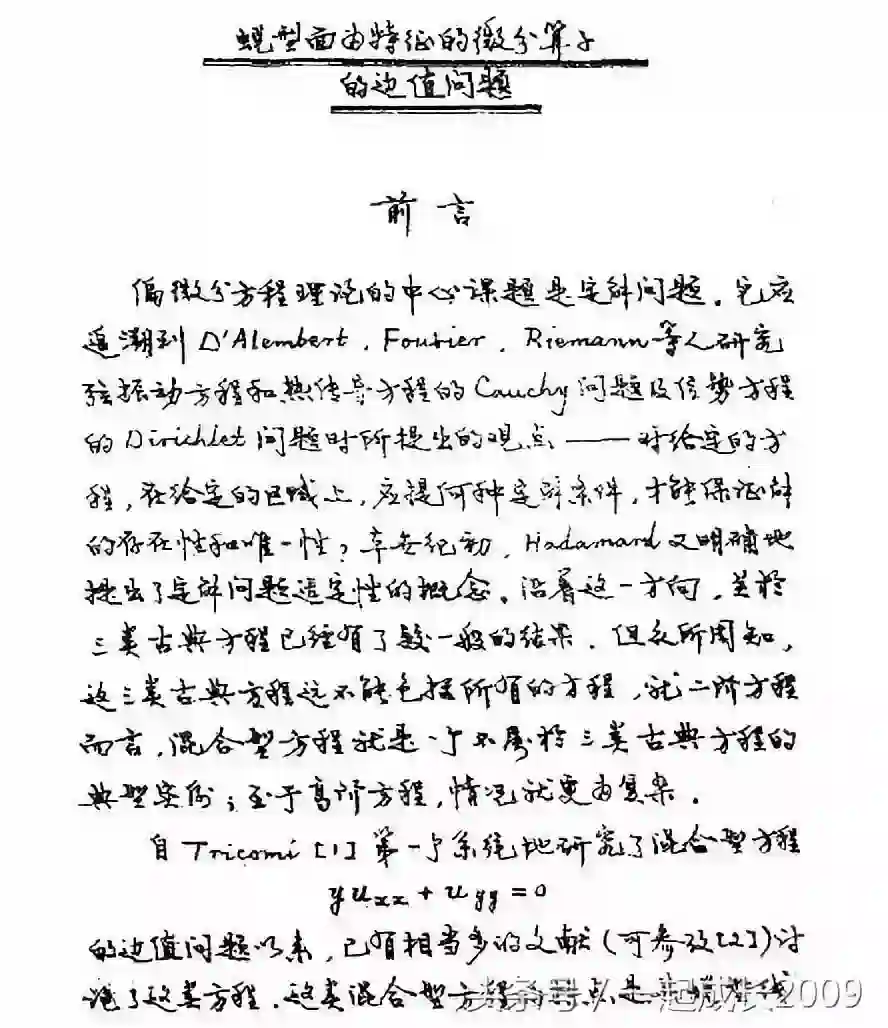 蜕型面为特征的微分算子
的边值问题
前言
偏微分方程理论的中心课题是定解问题。它应
追溯到 D'Alembert, Fourier, Riemann 等人研究
弦振动方程和热传导方程的 Cauchy 问题及位势方程
的 Dirichlet 问题时所提出的观点——对给定的方
程,在给定的区域上,应提何种定解条件,才能保证解
的存在性和唯一性;本世纪初,Hadamard 又明确地
提出了定解问题适定性的概念。沿着这一方向,关於
三类古典方程已经有了较一般的结果。但众所周知,
这三类古典方程远不能包括所有的方程,就二阶方程
而言,混合型方程就是一个不属於三类古典方程的
典型实例;至于高阶方程,情况就更为复杂。
自 Tricomi [1] 第一个系统地研究了混合型方程
yu_{xx} + u_{yy} = 0
的边值问题以来,已有相当多的文献(可参考[2])讨
论了这类方程。这类混合型方程的 点是 蜕型线
头条号/一起成长2009